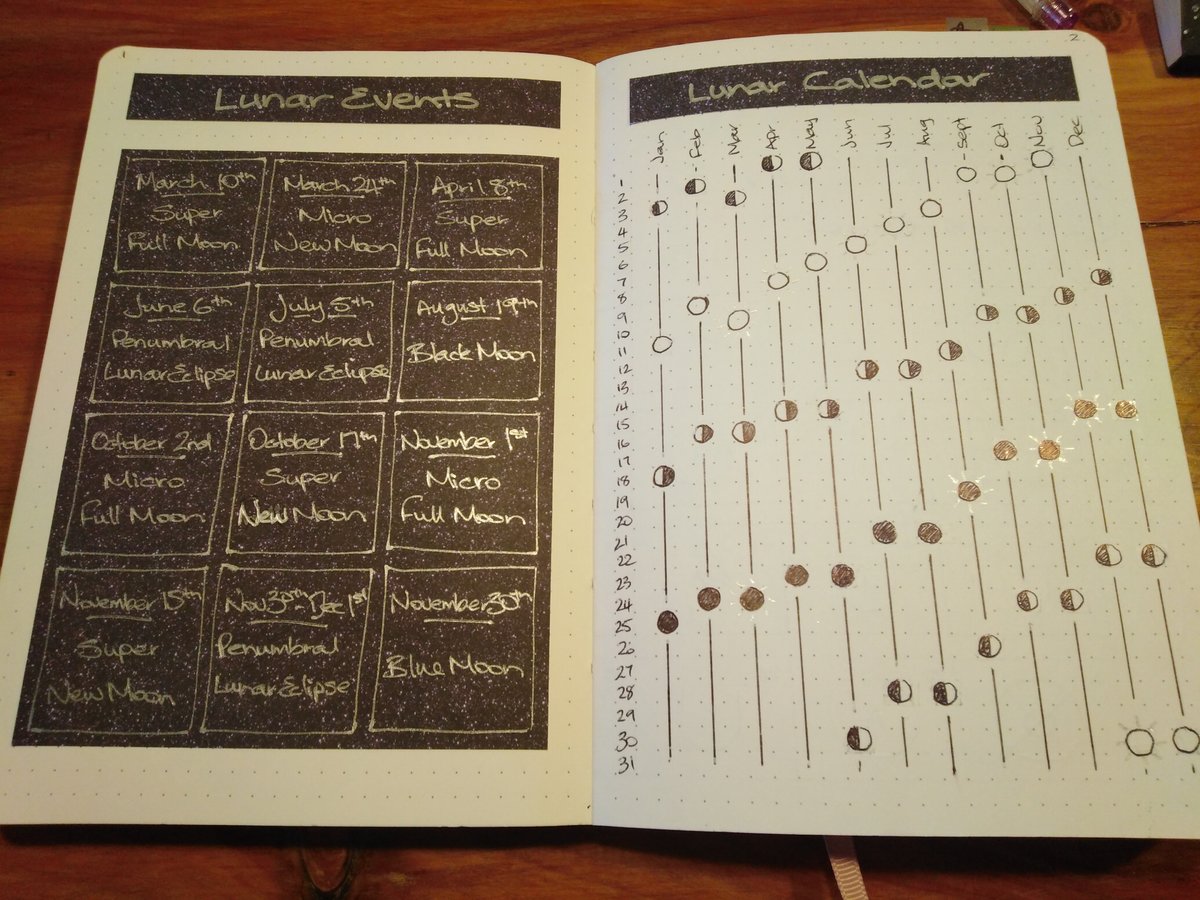 1
Lunar Events
March 10th
Super
Full Moon
March 24th
Micro
New Moon
April 8th
Super
Full Moon
June 6th
Penumbral
Lunar Eclipse
July 5th
Penumbral
Lunar Eclipse
August 19th
Black Moon
October 2nd
Micro
Full Moon
October 17th
Super
New Moon
November 1st
Micro
Full Moon
November 15th
Super
New Moon
Nov 30th - Dec 1st
Penumbral
Lunar Eclipse
November 30th
Blue Moon
2
Lunar Calendar
Jan Feb Mar Apr May Jun Jul Aug Sept Oct Nov Dec
1
2
3
4
5
6
7
8
9
10
11
12
13
14
15
16
17
18
19
20
21
22
23
24
25
26
27
28
29
30
31